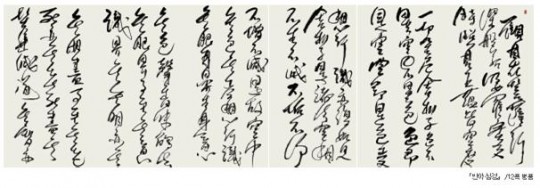 觀自在菩薩行
深般若波羅蜜多
時照見五蘊皆空度
一切苦厄舍利子色不
異空空不異色色即
是空空即是色受
想行識亦復如是
舍利子是諸法空相
不生不滅不垢不淨
不增不減是故空中
無色無受想行識
無眼耳鼻舌身意
無色聲香味觸法
無眼界乃至無意
識界無無明亦無
無明盡乃至無老
死亦無老死盡無苦
集滅道無智亦
「반야심경」 /12폭 병풍